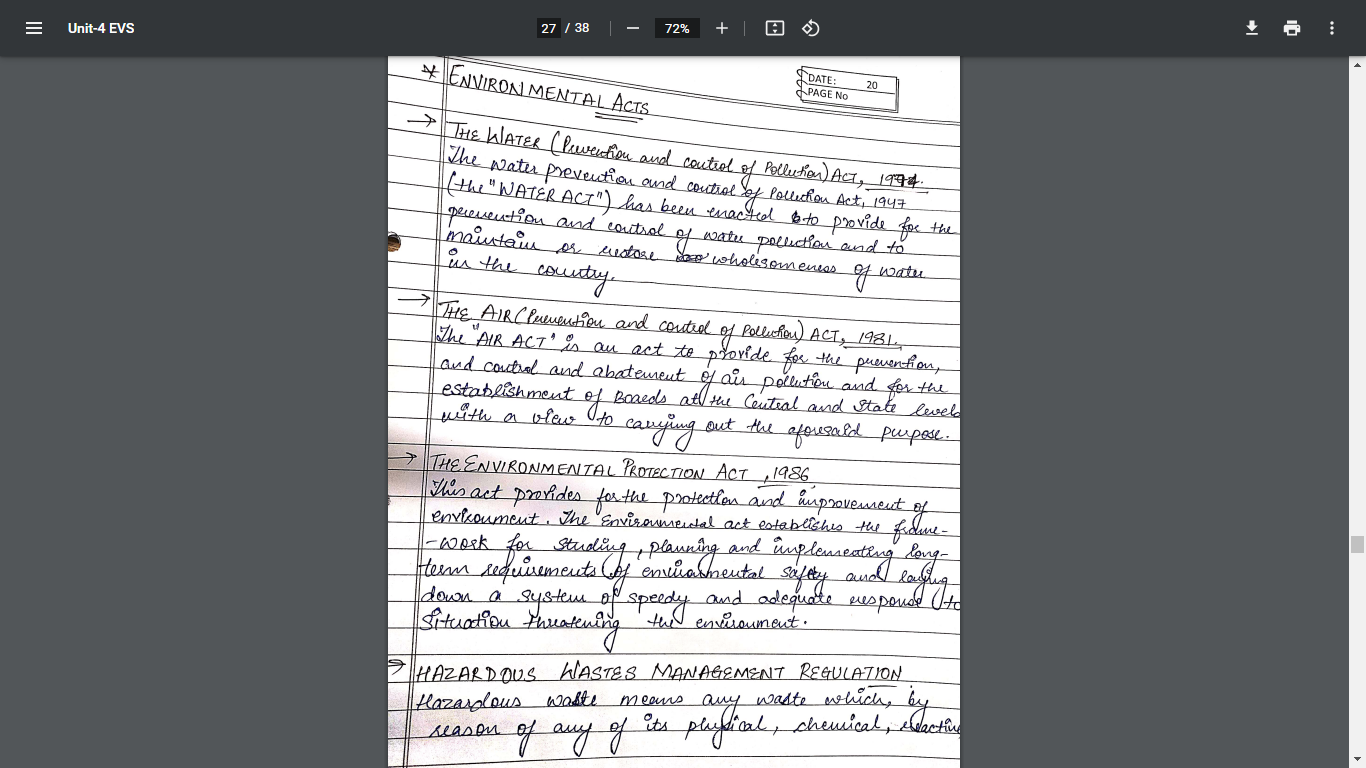 Unit-4 EVS
27 / 38
72%
DATE: 20
PAGE No
* ENVIRONMENTAL ACTS
→ THE WATER (Prevention and control of Pollution) ACT, 1974.
The water prevention and control of Pollution Act, 1947
(the "WATER ACT") has been enacted to provide for the
prevention and control of water pollution and to
maintain or restore wholesomeness of water
in the country.
→ THE AIR (Prevention and control of Pollution) ACT, 1981.
The "AIR ACT" is an act to provide for the prevention,
and control and abatement of air pollution and for the
establishment of Boards at the Central and State levels
with a view to carrying out the aforesaid purpose.
→ THE ENVIRONMENTAL PROTECTION ACT, 1986
This act provides for the protection and improvement of
environment. The Environmental act establishes the frame-
-work for studing, planning and implementing long-
term requirements of environmental safety and laying
down a system of speedy and adequate response to
situation threatening the environment.
→ HAZARDOUS WASTES MANAGEMENT REGULATION
Hazardous waste means any waste which, by
reason of any of its physical, chemical,